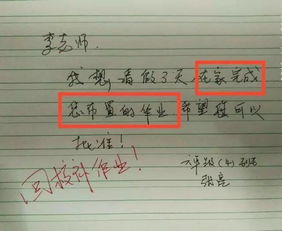 李老师.
我想请假3天在家完成
您布置的作业希望您可以
批准!
六年级(4)班
张亮
回校补作业!